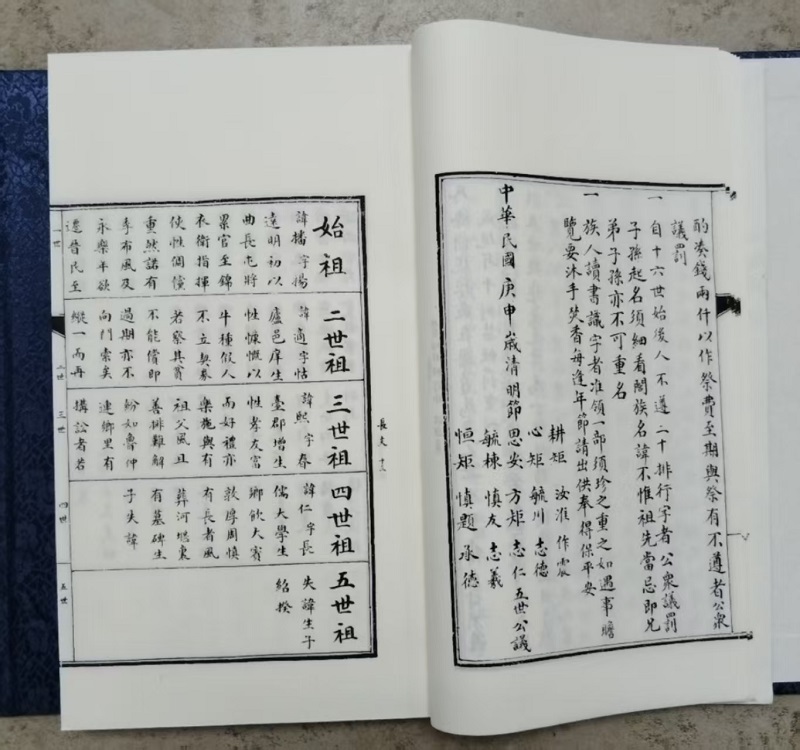 酌凑錢兩仟以作祭費至期與祭有不遵者公衆
議罰
一自十六世始後人不遵二十排行字者公衆議罰
子孫起名須細看閤族名諱不惟祖先當忌即兄
弟子孫亦不可重名
一族人讀書識字者准領一部須珍之重之如遇事瞻
覽要沐手焚香每逢年節請出供奉得保平安
耕矩 汝淮 作震
心矩 毓川 志德
中華民國庚申嵗清明節 思安 方矩 志仁 五世公議
毓棟 慎友 志義
恒矩 慎題 承德
長支 十六
始祖
諱播字揚
遠明初以
曲長屯將
累官至錦
衣衛指揮
使性倜儻
重然諾有
季布風及
永樂年欲
遷晉民至
二世祖
諱適字怙
廬邑庠生
性慷慨以
牛種假人
不立契券
若察其貧
不能償即
過期亦不
向門索矣
縱一而再
三世祖
諱熙字春
臺郡增生
性孝友富
而好禮亦
樂施與有
祖父風且
善排難解
紛如魯仲
連鄉里有
搆訟者若
四世祖
諱仁字長
儒大學生
鄉飲大賓
敦厚周慎
有長者風
葬河堐東
有墓碑生
子失諱
五世祖
失諱生子
紹揆
一世
二世
三世
四世
五世